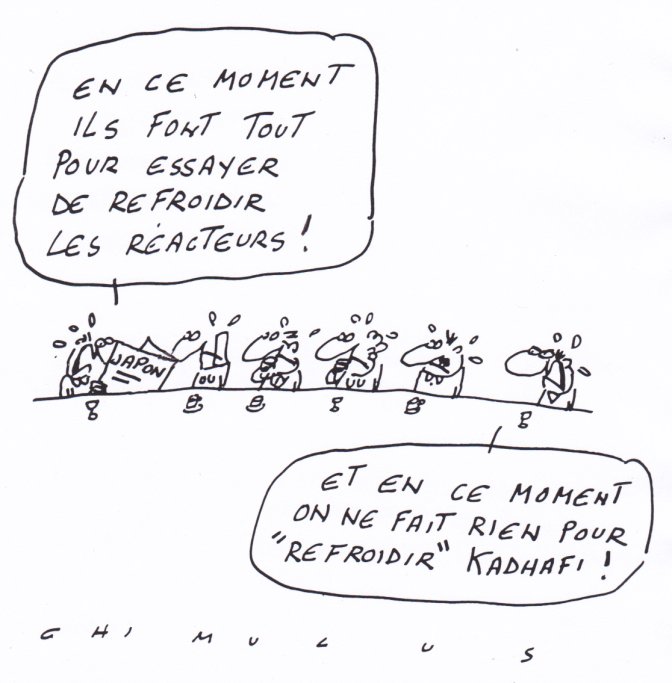 EN CE MOMENT
ILS FONT TOUT
POUR ESSAYER
DE REFROIDIR
LES RÉACTEURS !
JAPON
OU
UU
ET EN CE MOMENT
ON NE FAIT RIEN POUR
"REFROIDIR" KADHAFI !
CHIMULUS